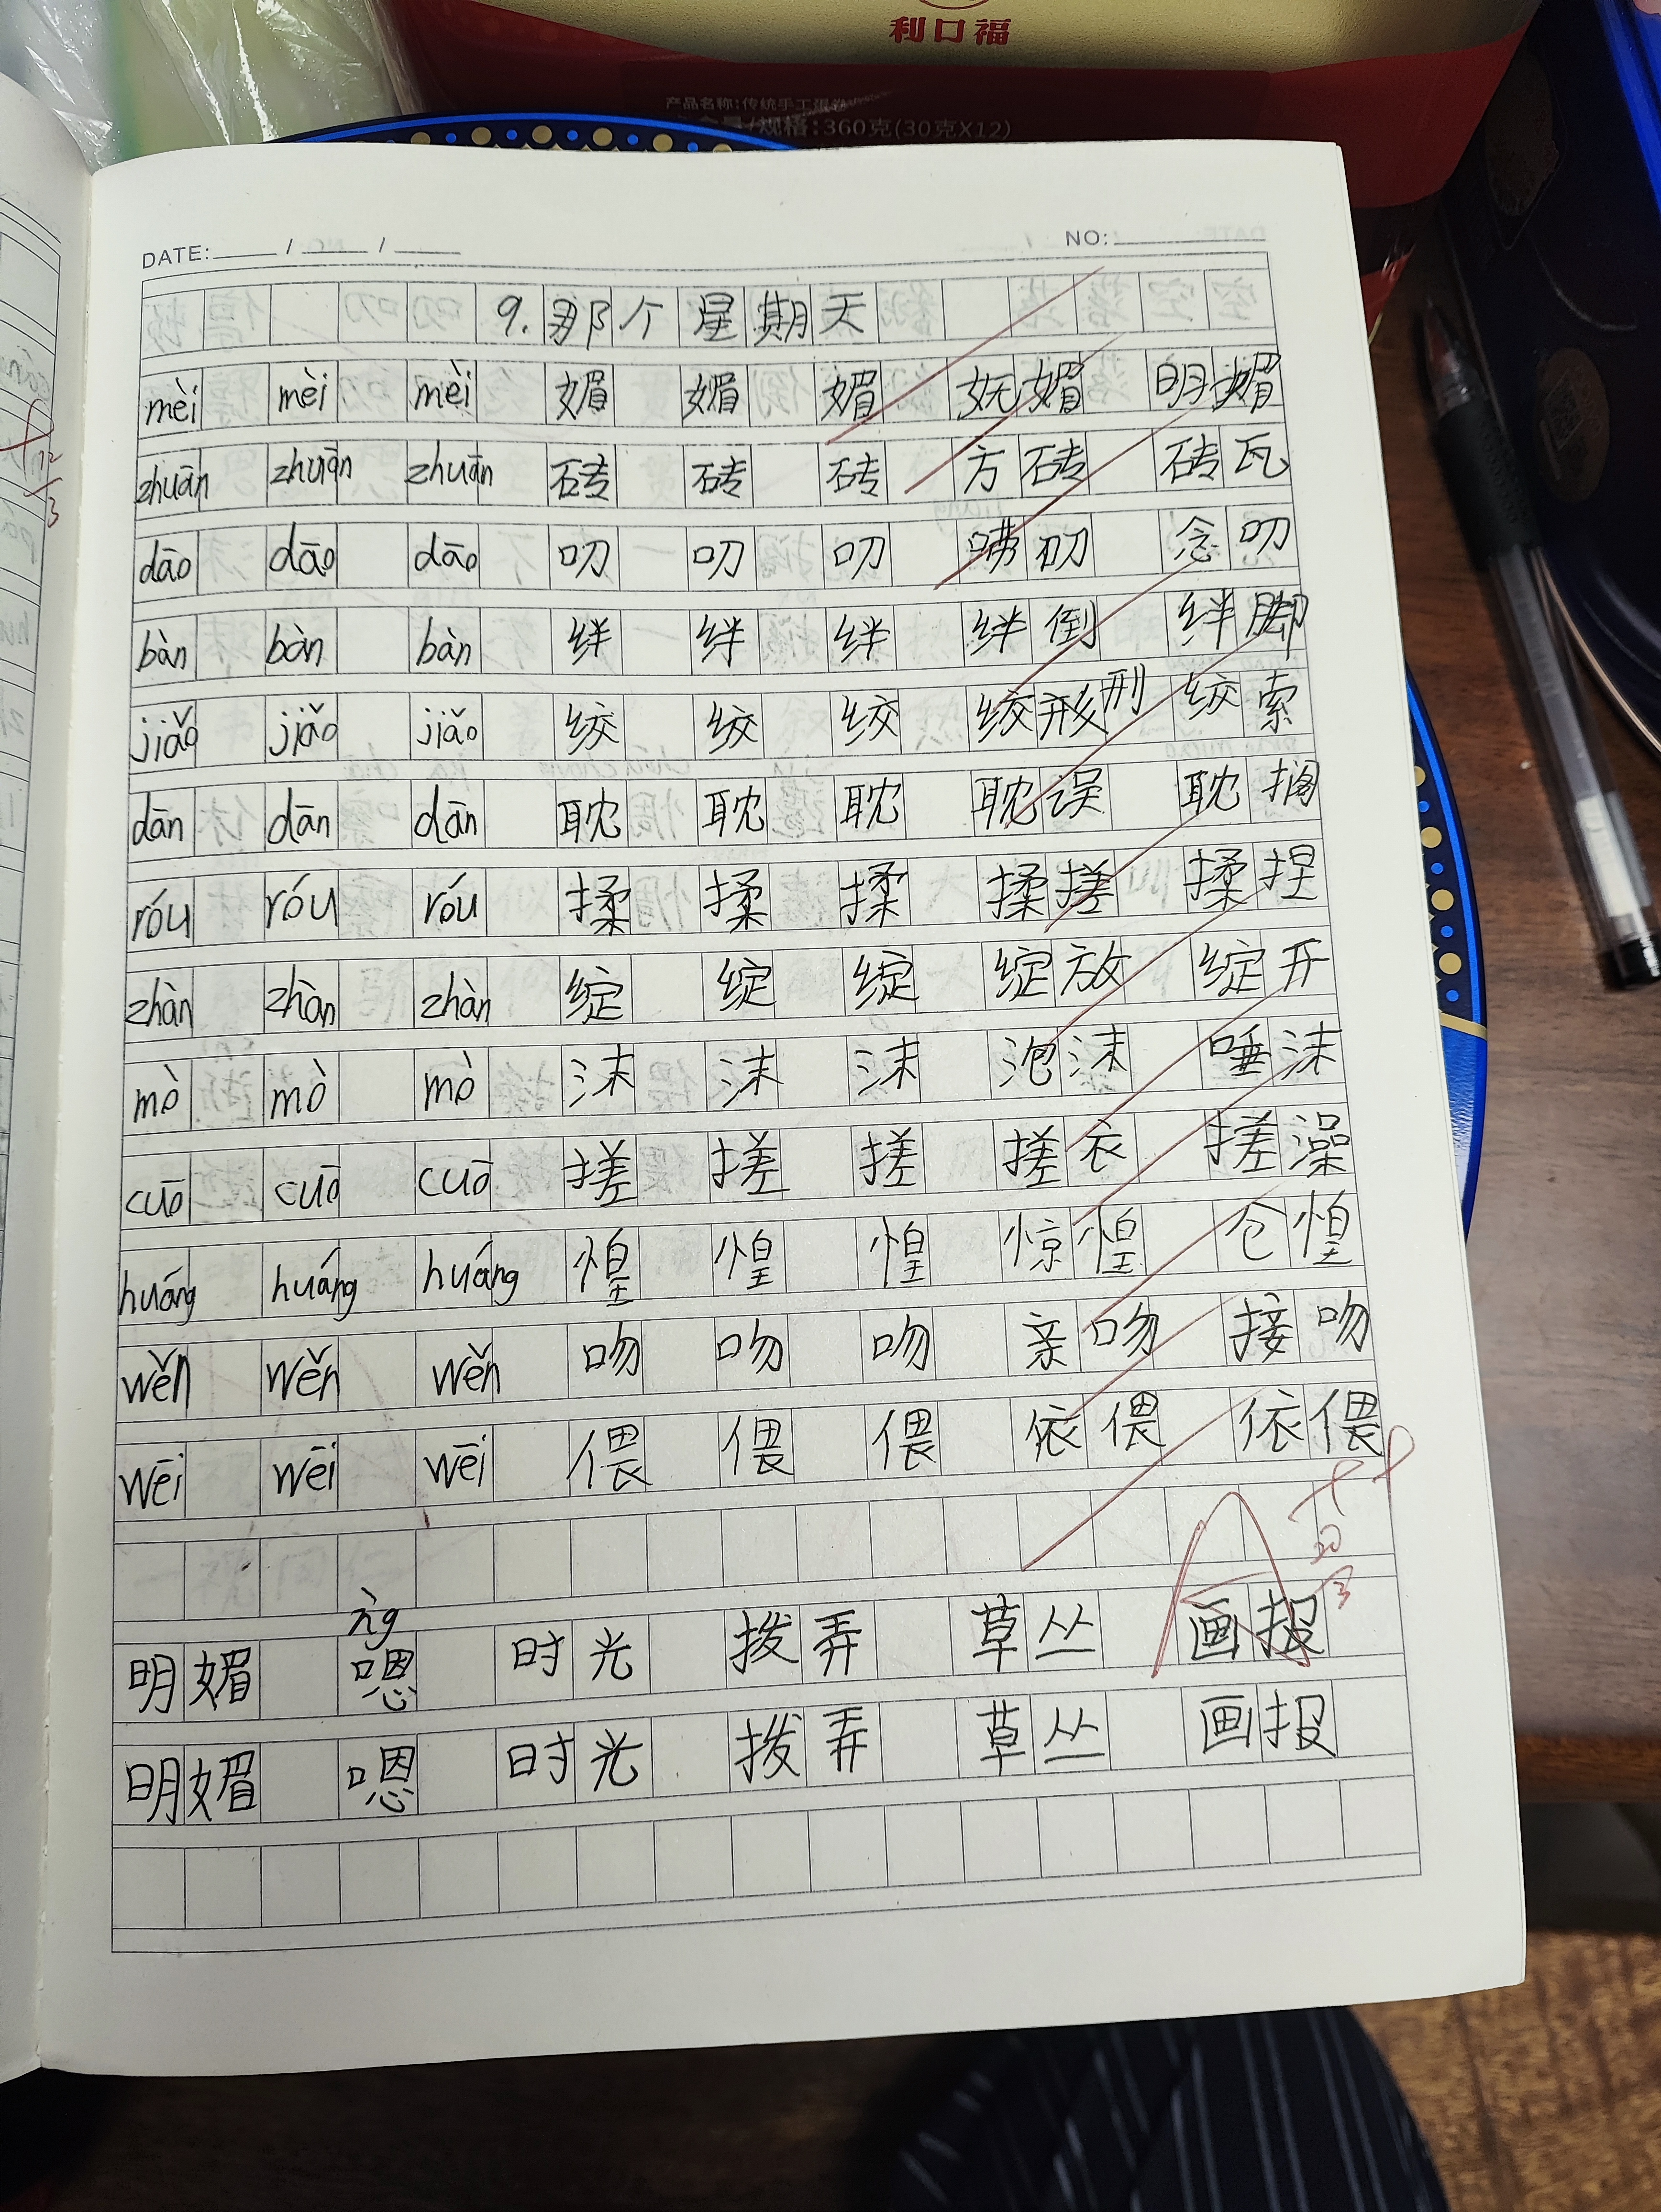 利口福
产品名称:传统手工蛋卷
/规格:360克(30克X12)
DATE: / /
NO:
9.那个星期天
mèi mèi mèi 媚 媚 媚 妩媚 明媚
zhuān zhuān zhuān 砖 砖 砖 方砖 砖瓦
dāo dāo dāo 叨 叨 叨 叨 念叨
bàn bàn bàn 绊 绊 绊 绊倒 绊脚
jiǎo jiǎo jiǎo 绞 绞 绞 绞形刑 绞索
dān dān dān 耽 耽 耽 耽误 耽搁
róu róu róu 揉 揉 揉 揉搓 揉捏
zhàn zhàn zhàn 绽 绽 绽 绽放 绽开
mò mò mò 沫 沫 沫 泡沫 唾沫
cuō cuō cuō 搓 搓 搓 搓衣 搓澡
huáng huáng huáng 惶 惶 惶 惊惶 仓惶
wěn wěn wěn 吻 吻 吻 亲吻 接吻
wēi wēi wēi 偎 偎 偎 依偎 依偎
A++
ǹg
明媚 嗯 时光 拨弄 草丛 画报
明媚 嗯 时光 拨弄 草丛 画报